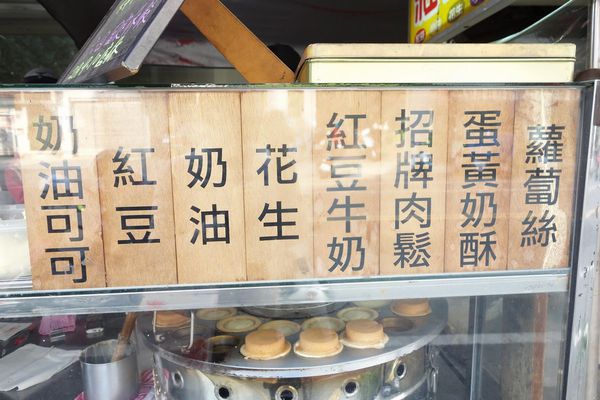 蘿蔔絲
蛋黃奶酥
招牌肉鬆
紅豆牛奶
花生
奶油
紅豆
奶油可可